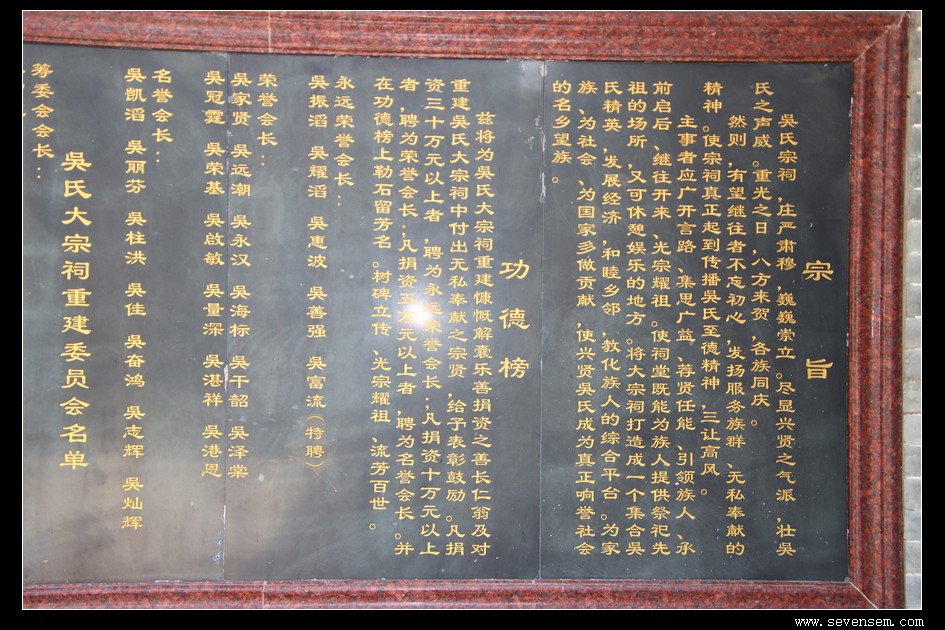 宗旨
吳氏宗祠,庄严肃穆,巍巍崇立。尽显兴贤之气派,壮吳
氏之声威。重光之日,八方来贺,各族同庆。
然则,有望继往者不忘初心,发扬服务族群、无私奉献的
精神。使宗祠真正起到传播吳氏至德精神,三让高风。
主事者应广开言路、集思广益、荐贤任能、引领族人、承
前启后、继往开来、光宗耀祖。使祠堂既能为族人提供祭祀先
祖的场所,又可休憩娱乐的地方。将大宗祠打造成一个集合吳
氏精英,发展经济,和睦乡邻,教化族人的综合平台。为家
族、为社会、为国家多做贡献,使兴贤吳氏成为真正响誉社会
的名乡望族。
功德榜
兹将为吳氏大宗祠重建慷慨解囊乐善捐资之善长仁翁及对
重建吳氏大宗祠中付出无私奉献之宗贤,给予表彰鼓励。凡捐
资三十万元以上者,聘为永远荣誉会长;凡捐资十万元以上
者,聘为荣誉会长;凡捐资五万元以上者,聘为名誉会长。并
在功德榜上勒石留芳名。树碑立传、光宗耀祖、流芳百世。
永远荣誉会长:
吳振滔 吳耀滔 吳惠波 吳善强 吳富流(特聘)
荣誉会长:
吳家贤 吳远潮 吳永汉 吳海标 吳干韶 吳泽棠
吳冠霆 吳荣基 吳啟敏 吳量深 吳湛祥 吳港恩
名誉会长:
吳凯滔 吳丽芬 吳柱洪 吳佳 吳奋鸿 吳志辉 吳灿辉
吳氏大宗祠重建委员会名单
筹委会会长:
www.sevensem.com